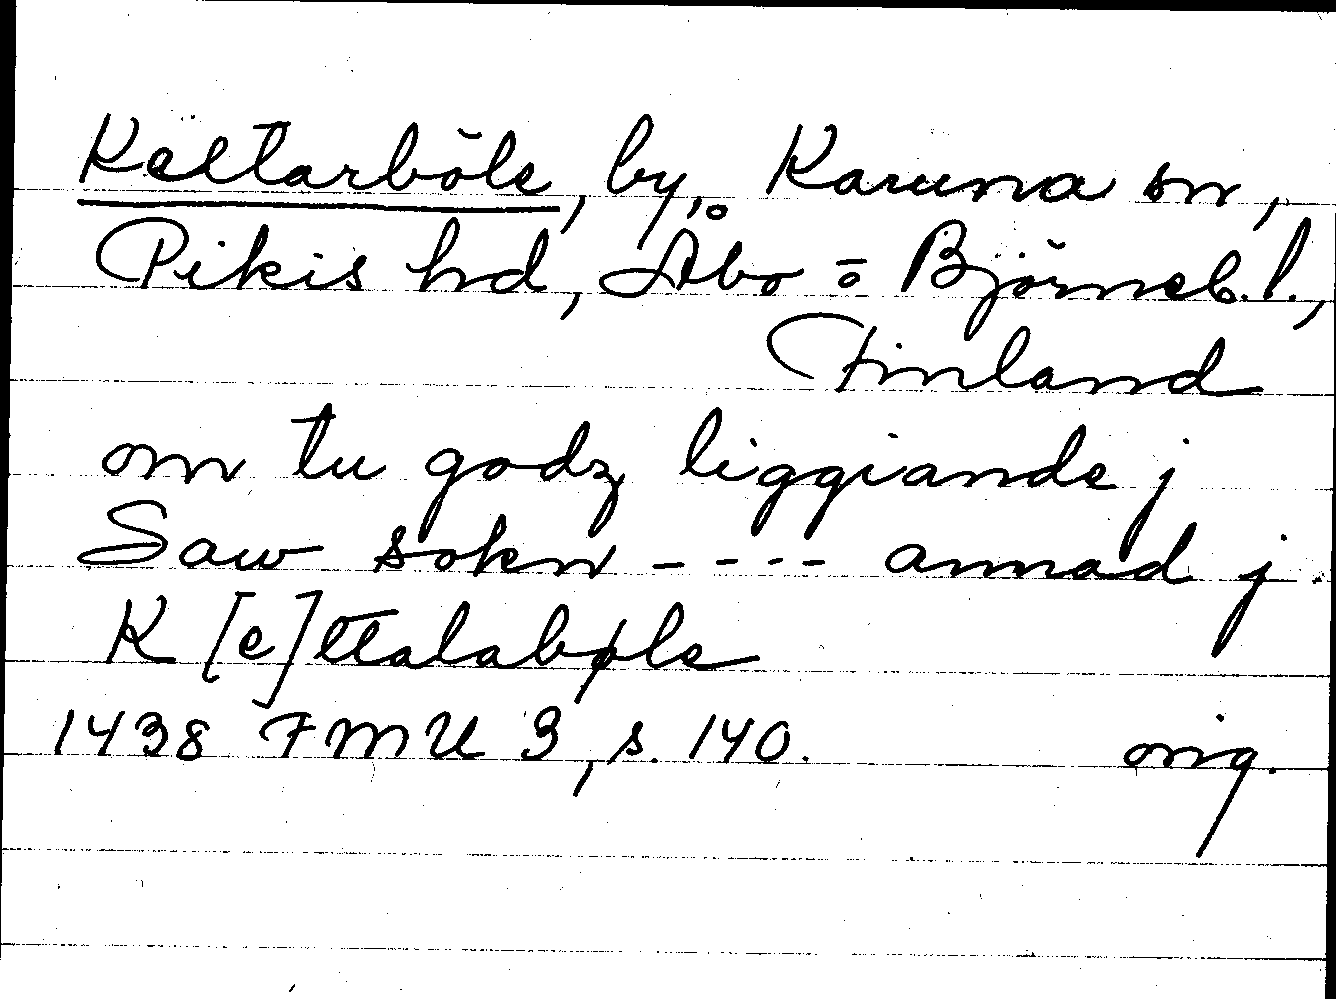 Kettarböle, by, Karuna sn,
Pikis hd, Åbo o Björneb. l.,
Finland
om tu godz liggiande j
Saw sokn - - - - annad j
K [e]ttalabøle
1438 FMU 3, s. 140. orig.